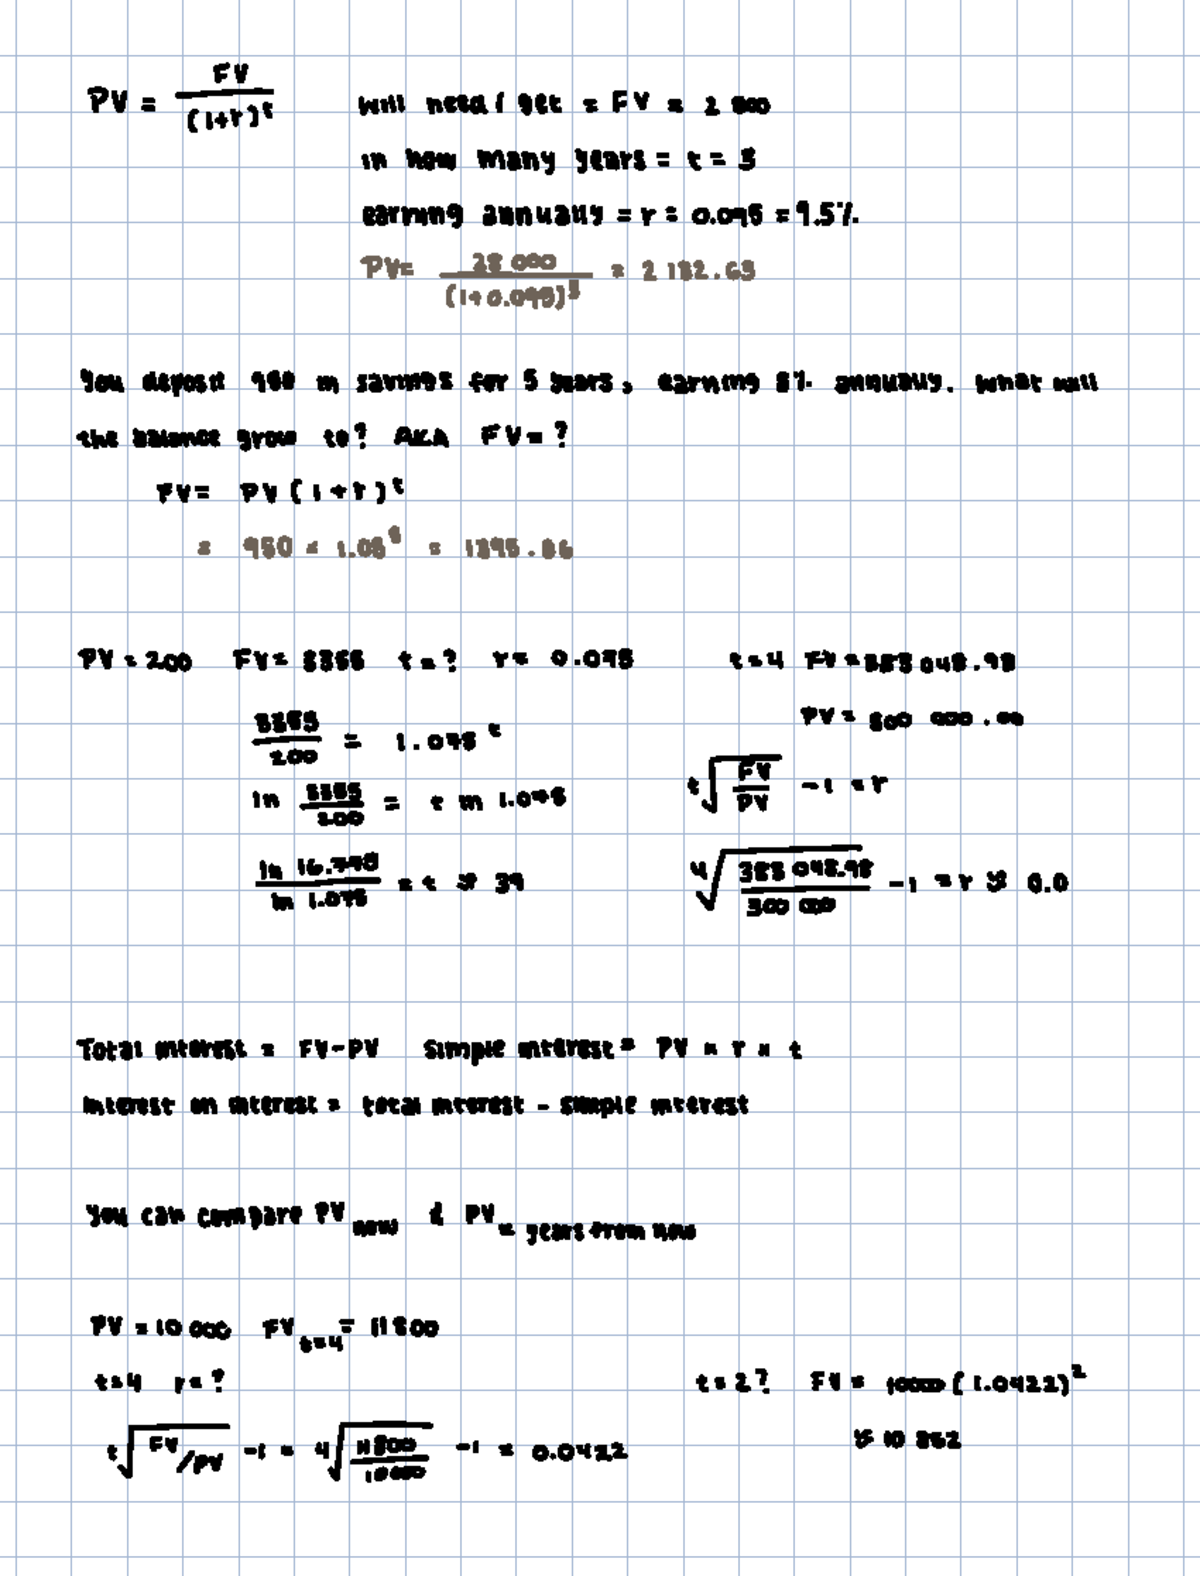 PV = FV / (1+r)^t
Will need / get = FV = 2 800
in how many years = t = 3
earning annually = r = 0.095 = 9.5%
PV = 28 000 / (1+0.095)^3 = 2 132.63
You deposit 950 in savings for 5 years, earning 8% annually. What will
the balance grow to? AKA FV = ?
FV = PV (1+r)^t
= 950 × 1.08 = 1395.86
PV = 200 FV = 3355 t = ? r = 0.075
3355 / 200 = 1.075^t
ln 3355 / 200 = t ln 1.075
ln 16.775 / ln 1.075 = t ≈ 39
t = 4 FV = 383 048.98
PV = 300 000.00
t√(FV / PV) -1 = r
4√(383 048.98 / 300 000) -1 = r ≈ 0.0
Total interest = FV-PV Simple interest = PV × r × t
Interest on interest = total interest - simple interest
You can compare PV now & PV years from now
PV = 10 000 FV t=4 = 11 800
t=4 r=?
t√(FV/PV) -1 = 4√(11800 / 10000) -1 = 0.0422
t = 2? FV = 10000 (1.0422)^2
≈ 10 862